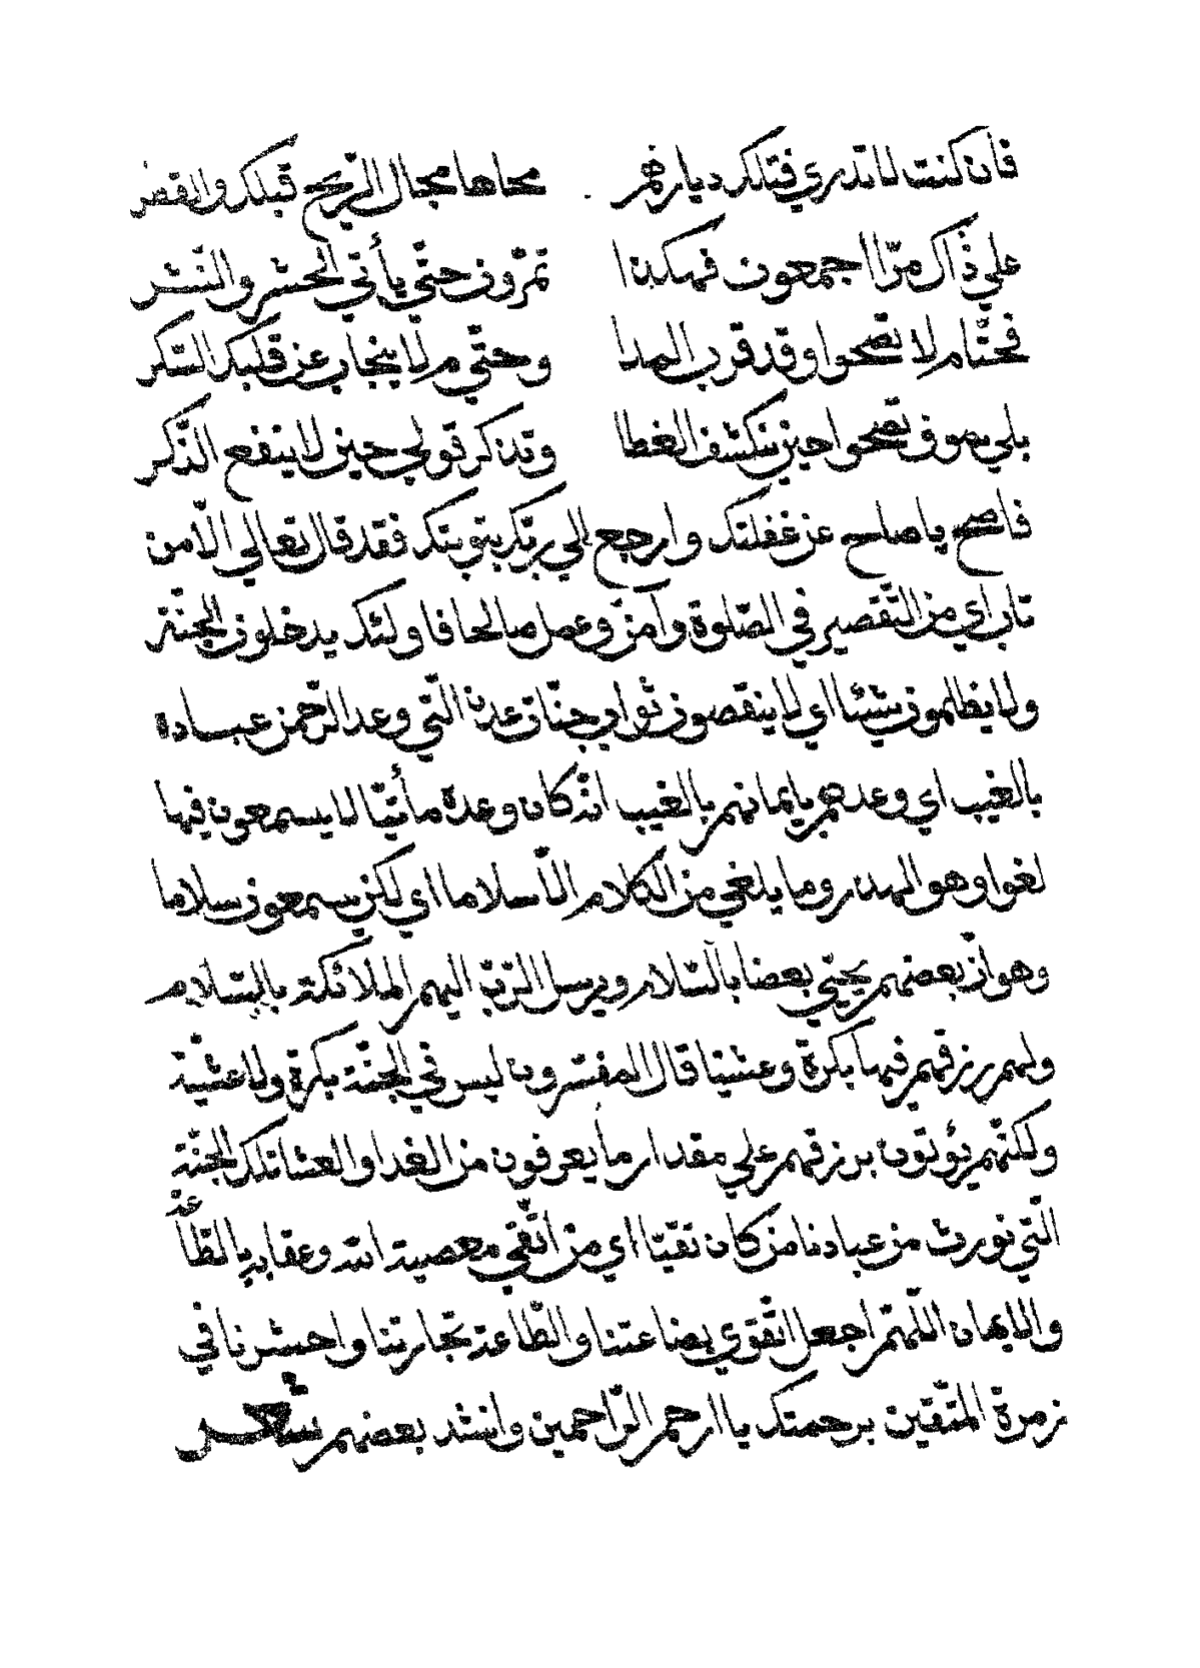 فان كنت لا تدري فتلك ديارهم محاها مجال الريح قبلك والقطر
علي ذاك مرّا اجمعون فهكذا تمرّون حتّي يأتي الحشر والنّشر
فحتّام لا تصحوا وقد قرب المدا وحتّي م لا ينجاب عن قلبك السّكر
بلي سوف تصحوا حين ينكشف الغطا وتذكر قولي حين لا ينفع الذّكر
فاصح يا صاح عن غفلتك وارجع الي ربّك بتوبتك فقد قال تعالي الّا من
تاب اي من التّقصير في الصّلوة وآمن وعمل صالحا فاولئك يدخلون الجنّة
ولا يظلمون شيئا اي لا ينقصون ثوابي جنّات عدن الّتي وعد الرّحمن عباده
بالغيب اي وعدهم بايمانهم بالغيب انّه كان وعده مأتيّا لا يسمعون فيها
لغوا وهو الهدر وما يلغي من الكلام الّا سلاما اي لكن يسمعون سلاما
وهو انّ بعضهم يحيّي بعضا بالسّلام ويرسل الرّبّ اليهم الملائكة بالسّلام
ولهم رزقهم فيها بكرة وعشيّا قال المفسّرون ليس في الجنّة بكرة ولا عشيّة
ولكنّهم يؤتون برزقهم علي مقدار ما يعرفون من الغدا والعشا تلك الجنّة
الّتي نورث من عبادنا من كان تقيّا اي من اتّقي معصية الله وعقابه بالطّاعة
والايمان اللّهمّ اجعل التّقوي بضاعتنا والطّاعة تجارتنا واحشرنا في
زمرة المتّقين برحمتك يا ارحم الرّاحمين وانشد بعضهم شعر